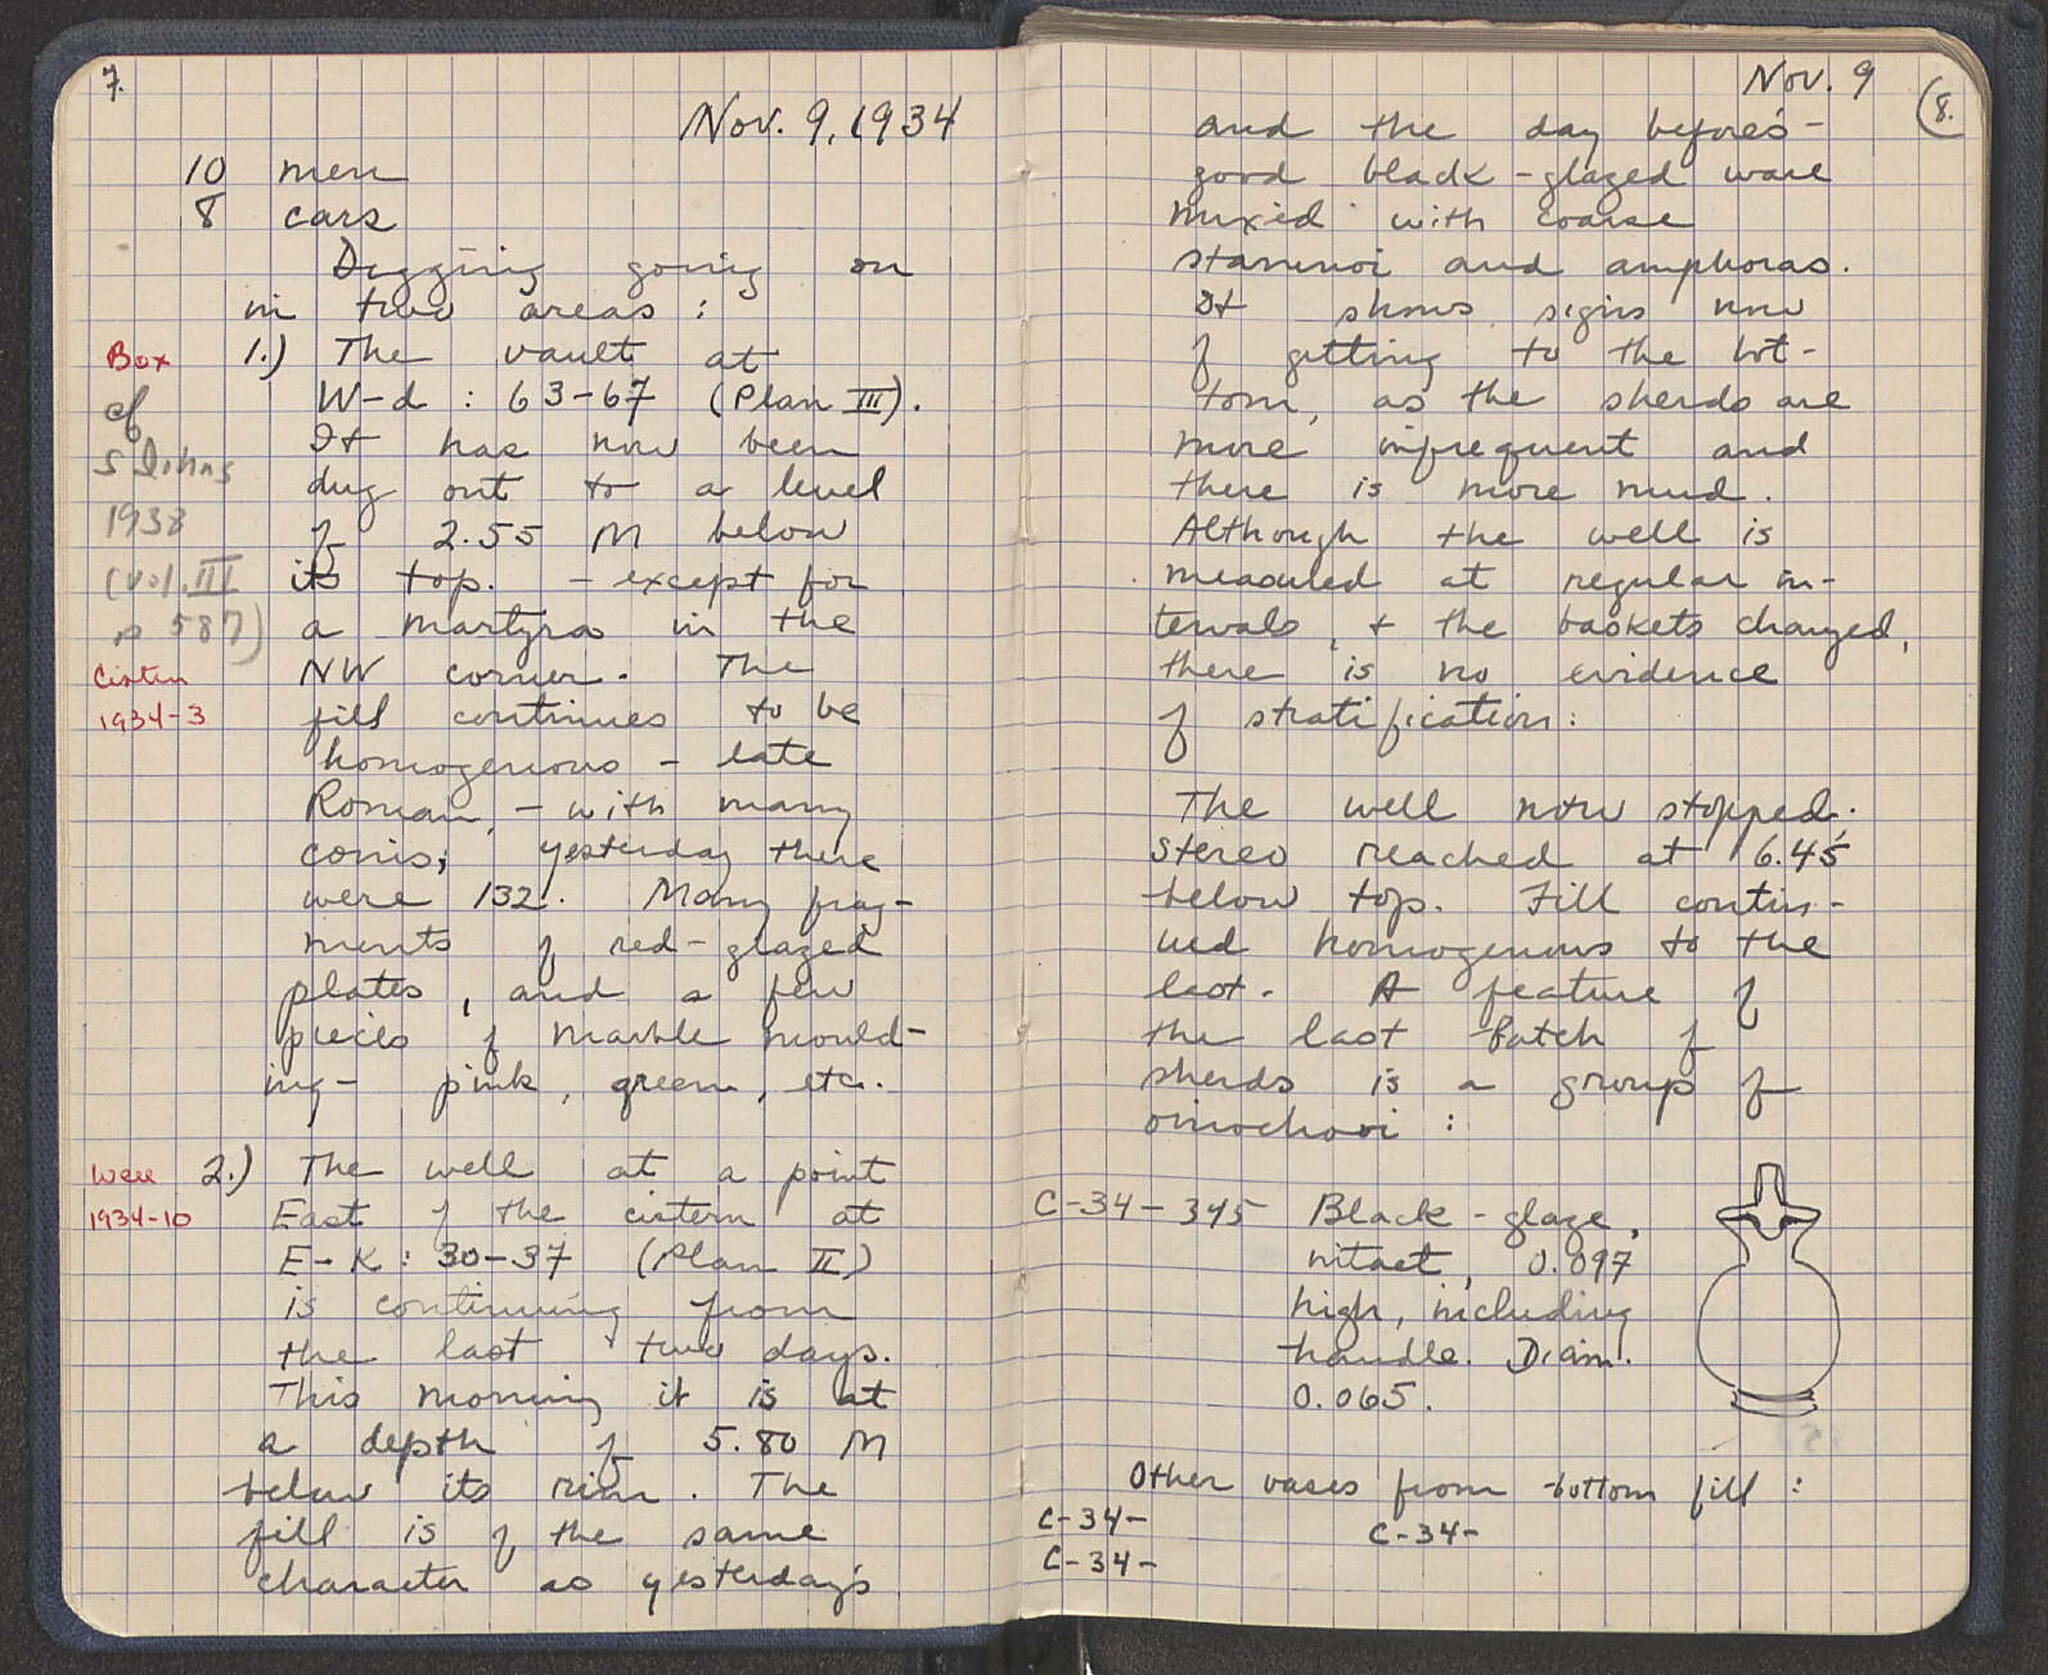 7.
Nov. 9, 1934
10 men
8 cars
Digging going on
in two areas :
Box
1.) The vault at
W-d : 63-67 (Plan III).
cf
S Johns
1938
(vol. III
p 587)
It has now been
dug out to a level
of 2.55 M below
its top. - except for
a martyra in the
Cistern
1934-3
NW corner. The
fill continues to be
homogenious - late
Roman, - with many
coins; yesterday there
were 132. Many frag-
ments of red-glazed
plates, and a few
pieces of marble mould-
ing - pink, green, etc.
Well
1934-10
2.) The well at a point
East of the cistern at
E-K : 30-37 (Plan II)
is continuing from
the last two days.
This morning it is at
a depth of 5.80 M
below its rim. The
fill is of the same
character as yesterday's
Nov. 9
8.
and the day before's -
good black-glazed ware
mixed with coarse
stamnoi and amphoras.
It shows signs now
of getting to the bot-
tom, as the sherds are
more infrequent and
there is more mud.
Although the well is
measured at regular in-
tervals, + the baskets changed,
there is no evidence
of stratification:
The well now stopped;
stereo reached at 6.45
below top. Fill contin-
ued homogenous to the
last. A feature of
the last batch of
sherds is a group of
oinochooi :
C-34-345 Black-glaze,
intact, 0.097
high, including
handle. Diam.
0.065.
Other vases from bottom fill :
C-34-
C-34-
C-34-